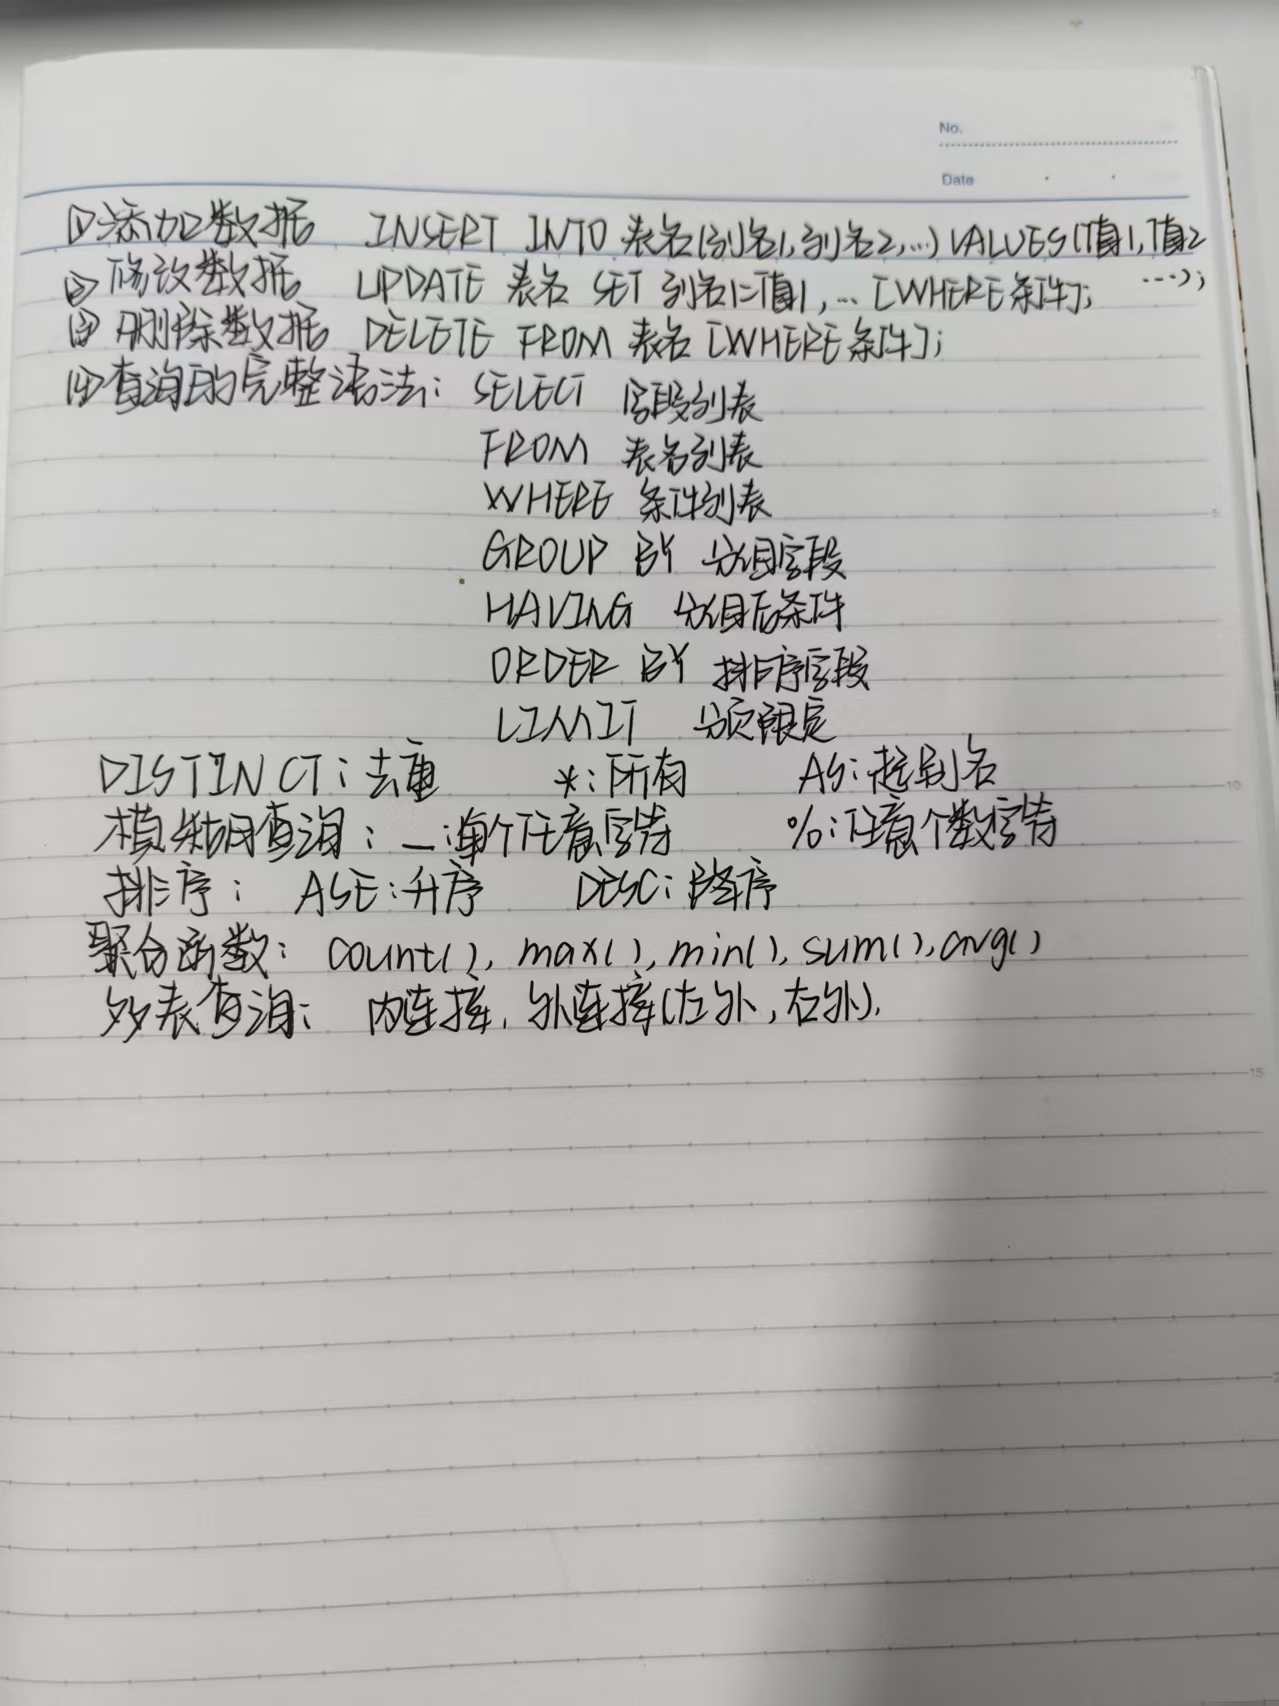 No.
Date
①添加数据 INSERT INTO 表名(列名1,列名2,...) VALUES(值1,值2
...);
②修改数据 UPDATE 表名 SET 列名1=值1,... [WHERE 条件];
③删除数据 DELETE FROM 表名 [WHERE 条件];
④查询的完整语法: SELECT 字段列表
FROM 表名列表
WHERE 条件列表
5
GROUP BY 分组字段
HAVING 分组后条件
ORDER BY 排序字段
LIMIT 分页限定
DISTINCT:去重 *:所有 AS:起别名
10
模糊查询:_:单个任意字符 %:任意个数字符
排序: ASE:升序 DESC:降序
聚合函数: count(), max(), min(), sum(), avg()
多表查询: 内连接, 外连接(左外,右外).
15